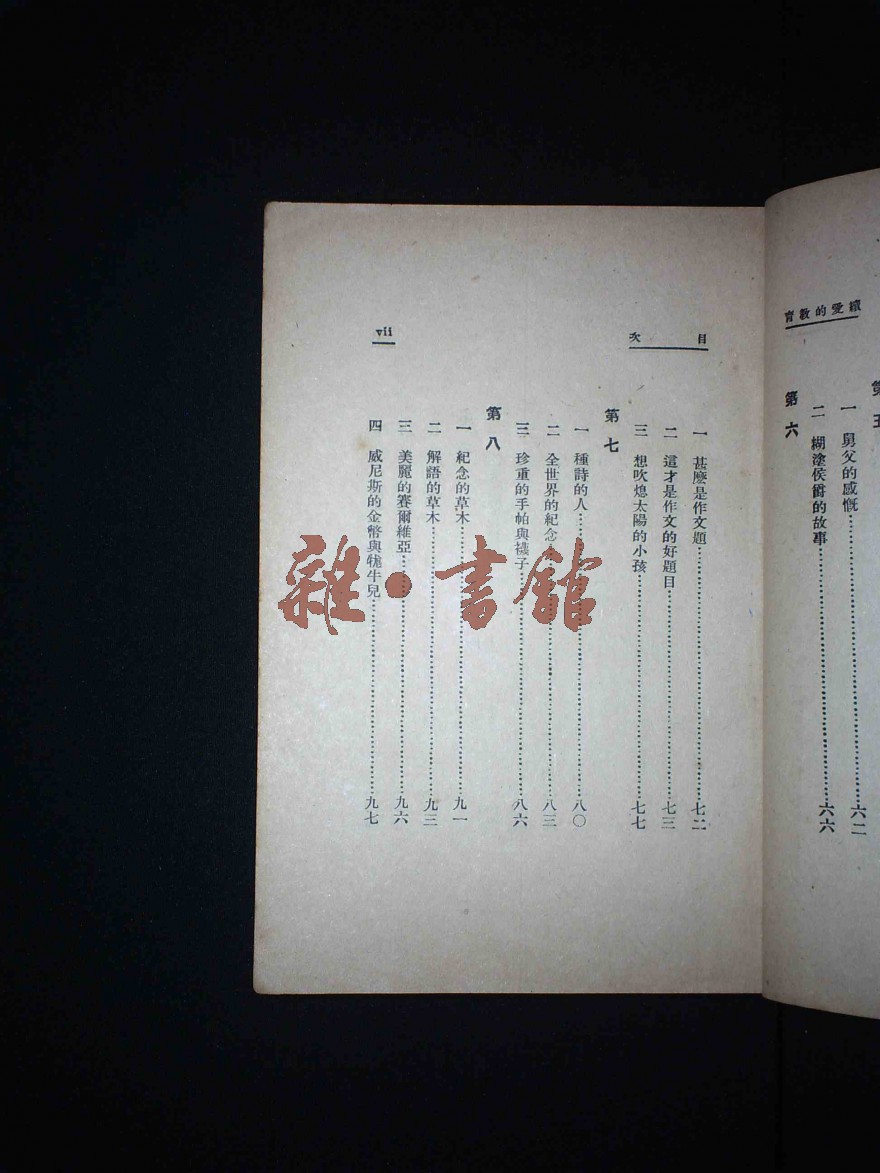 續愛的教育
第五
一 舅父的感慨……六二
二 糊塗侯爵的故事……六六
第六
目次
一 甚麼是作文題……七二
二 這才是作文的好題目……七三
三 想吹熄太陽的小孩……七七
第七
一 種詩的人……八〇
二 全世界的紀念……八三
三 珍重的手帕與襪子……八六
第八
一 紀念的草木……九一
二 解語的草木……九三
三 美麗的賽爾維亞……九六
四 威尼斯的金幣與犍牛兒……九七
vii
雜·書館